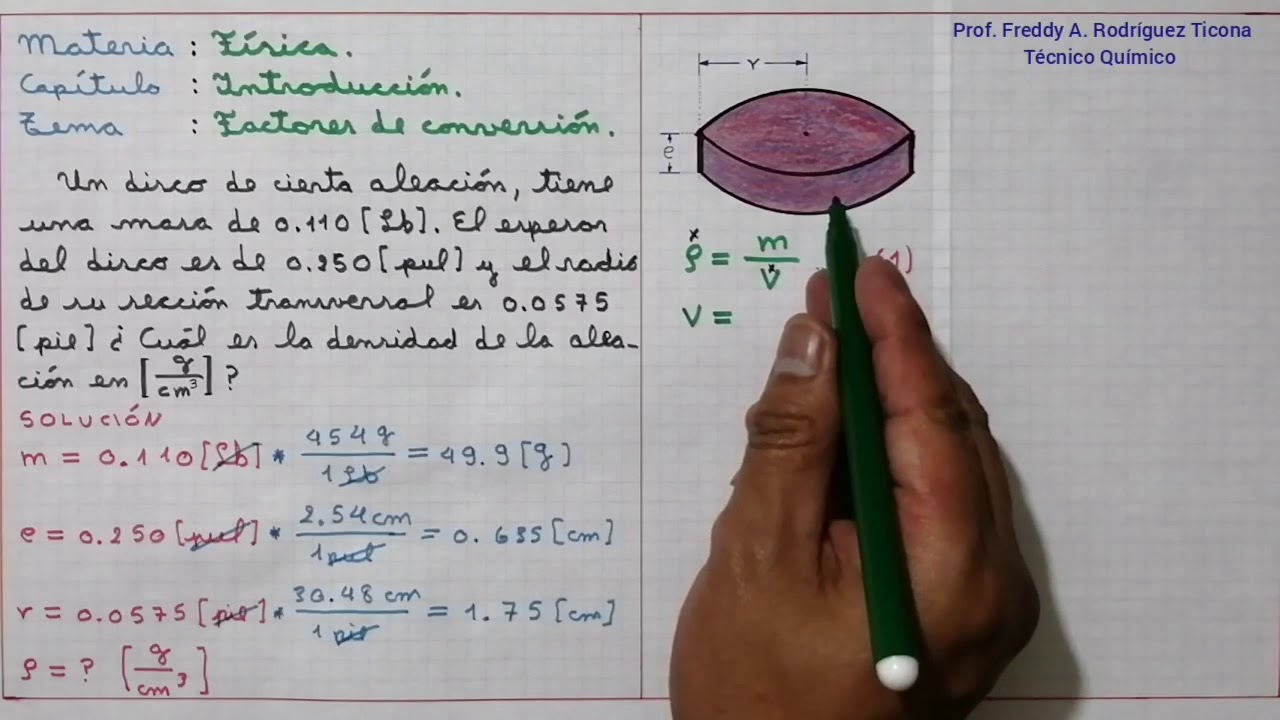 Prof. Freddy A. Rodríguez Ticona
Técnico Químico
Materia : Física.
Capítulo : Introducción.
Tema : Factores de conversión.
Un disco de cierta aleación, tiene
una masa de 0.110 [Lb]. El espesor
del disco es de 0.250 [pul] y el radio
de su sección transversal es 0.0575
[pie] ¿ Cuál es la densidad de la alea-
ción en [g/cm³] ?
SOLUCIÓN
m = 0.110 [Lb] * 454 g / 1 Lb = 49.9 [g]
e = 0.250 [pul] * 2.54 cm / 1 pul = 0.635 [cm]
r = 0.0575 [pie] * 30.48 cm / 1 pie = 1.75 [cm]
ρ = ? [g/cm³]
r
e
ρ = m / V (1)
V =